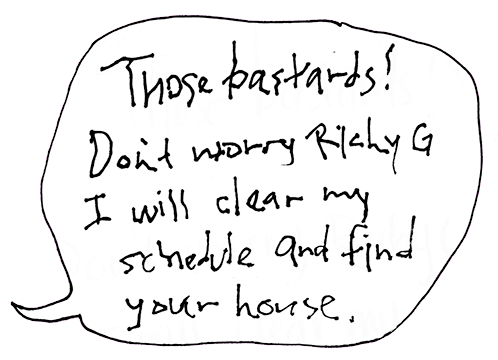 Those bastards!
Don't worry Richy G
I will clear my
schedule and find
your house.